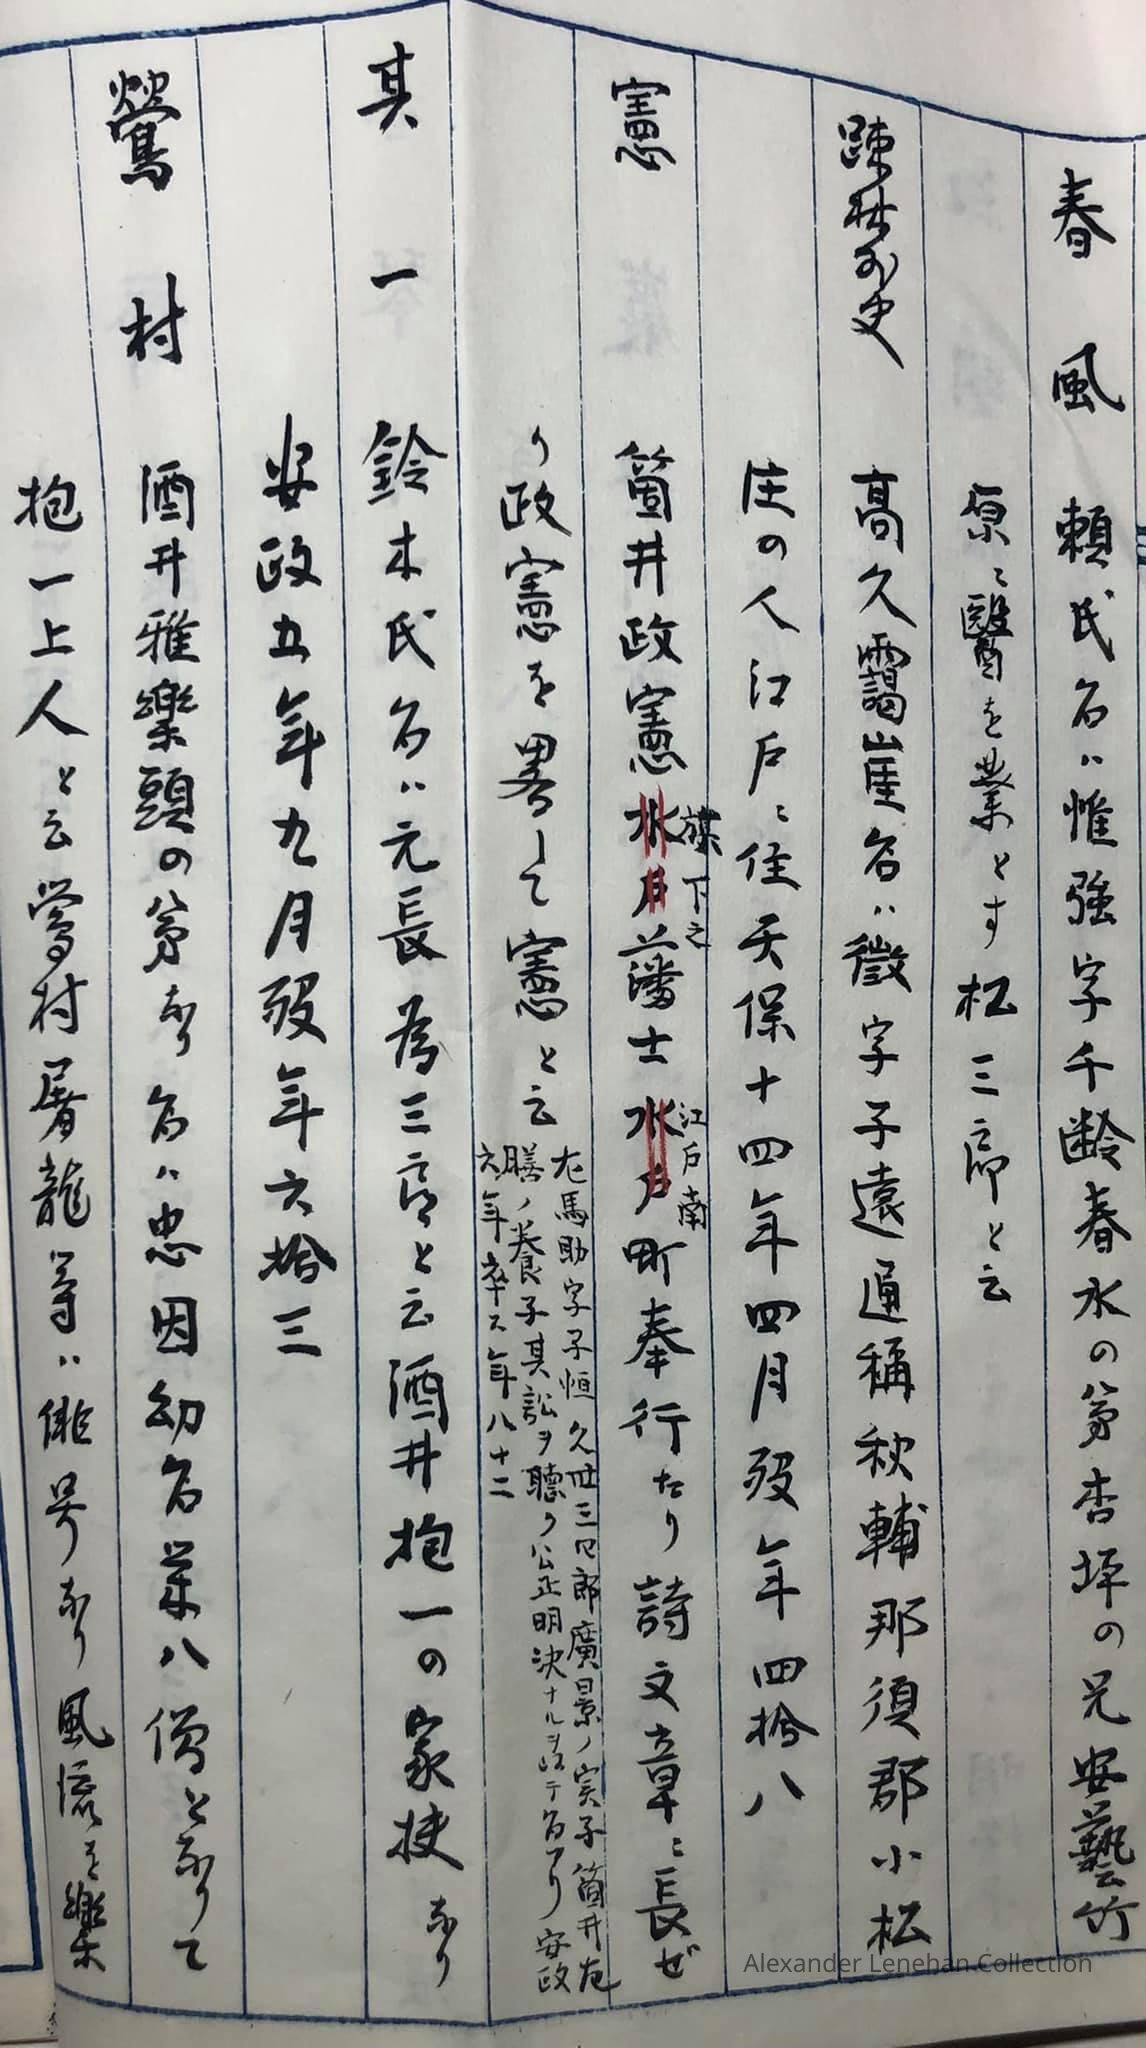 春風 頼氏名ハ惟強字千齢春水の弟杏坪の兄安藝竹
原ニ醫を業とす松三郎と云
疎林外史 高久靄崖名ハ徴字子遠通稱秋輔那須郡小松
庄の人江戸ニ住天保十四年四月歿年四拾八
憲 筒井政憲水戸藩士水戸町奉行たり詩文章ニ長ぜ
旗下之
江戸南
り政憲を畧して憲と云
左馬助字子恒久世三四郎廣景ノ実子筒井左
膳ノ養子其訟ヲ聽ク公正明決ナルヲ以テ名アリ安政
六年卒ス年八十二
其一 鈴木氏名ハ元長為三郎と云酒井抱一の家扶なり
安政五年九月歿年六拾三
鶯村 酒井雅樂頭の弟なり名ハ忠因幼名栄八僧となりて
抱一上人と云鶯村屠龍等ハ俳号なり風流を樂
Alexander Lenehan Collection